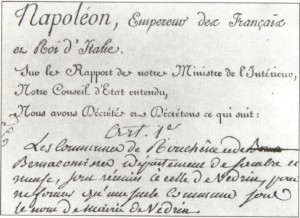 Napoléon, Empereur des Français
et Roi d'Italie.
Sur le Rapport de notre Ministre de l'Intérieur,
Notre Conseil d'Etat entendu,
Nous avons Décrété et Décrétons ce qui suit:
Art. 1er
Les communes de et de
département de Sambre et
meuse, sont réunies à celle de Védrin, pour
ne former qu'une seule commune sous
le nom de mairie de Védrin.